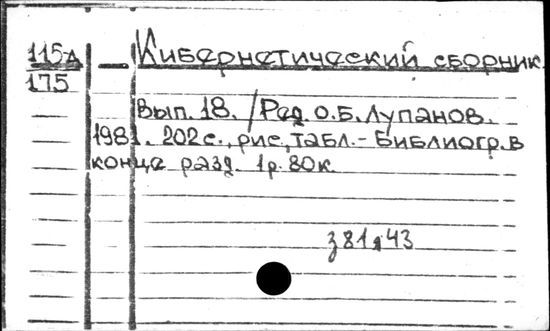 115д
175
Кибернетический сборник.
Вып. 18. / Ред. О.Б. Лупанов.
1981. 202 с., рис., табл. - Библиогр. в
конце разд. 1 р. 80 к.
з81я43